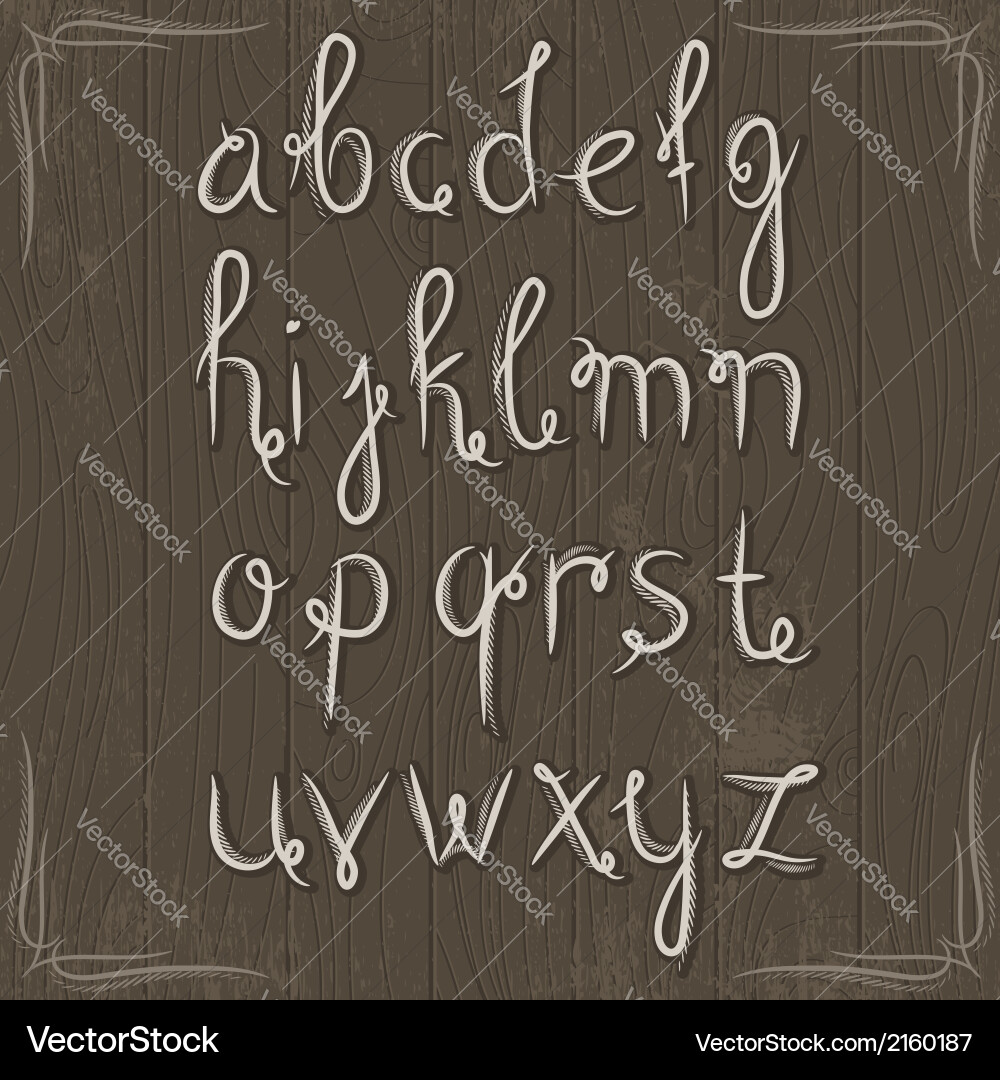 abcdefg
hijklmn
opqrst
uvwxyz
VectorStock® VectorStock.com/2160187